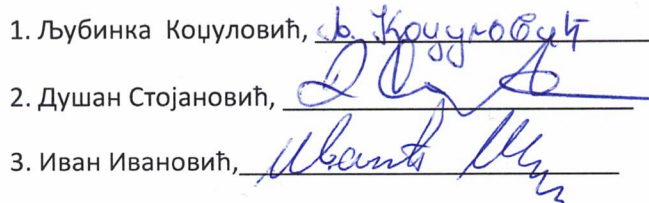 1. Љубинка Коџуловић, Љ. Коџуловић
2. Душан Стојановић,
3. Иван Ивановић,